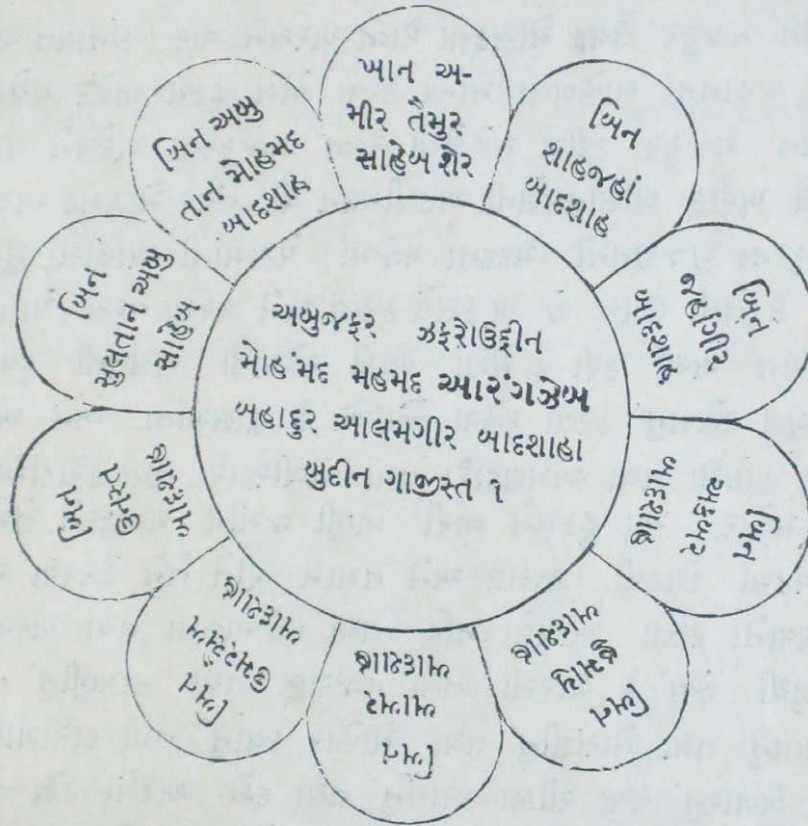 અબુજફર ઝફરોઉદ્દીન
મોહમદ મહમદ આરંગઝેબ
બહાદુર આલમગીર બાદશાહા
ખુદીન ગાજીસ્ત ૧
ખાન અ-
મીર તૈમુર
સાહેબ શેર
બિન
શાહજહાં
બાદશાહ
બિન
જહાગીર
બાદશાહ
બિન
અકબર
બાદશાહ
બિન
હુમાયુ
બાદશાહ
બિન
બાબર
બાદશાહ
બિન
ઉમરશેખ
બાદશાહ
બિન
બાદશાહ
બિન
સુલતાન અબુ
સાહેબ
બિન અબુ
તાન મોહમદ
બાદશાહ